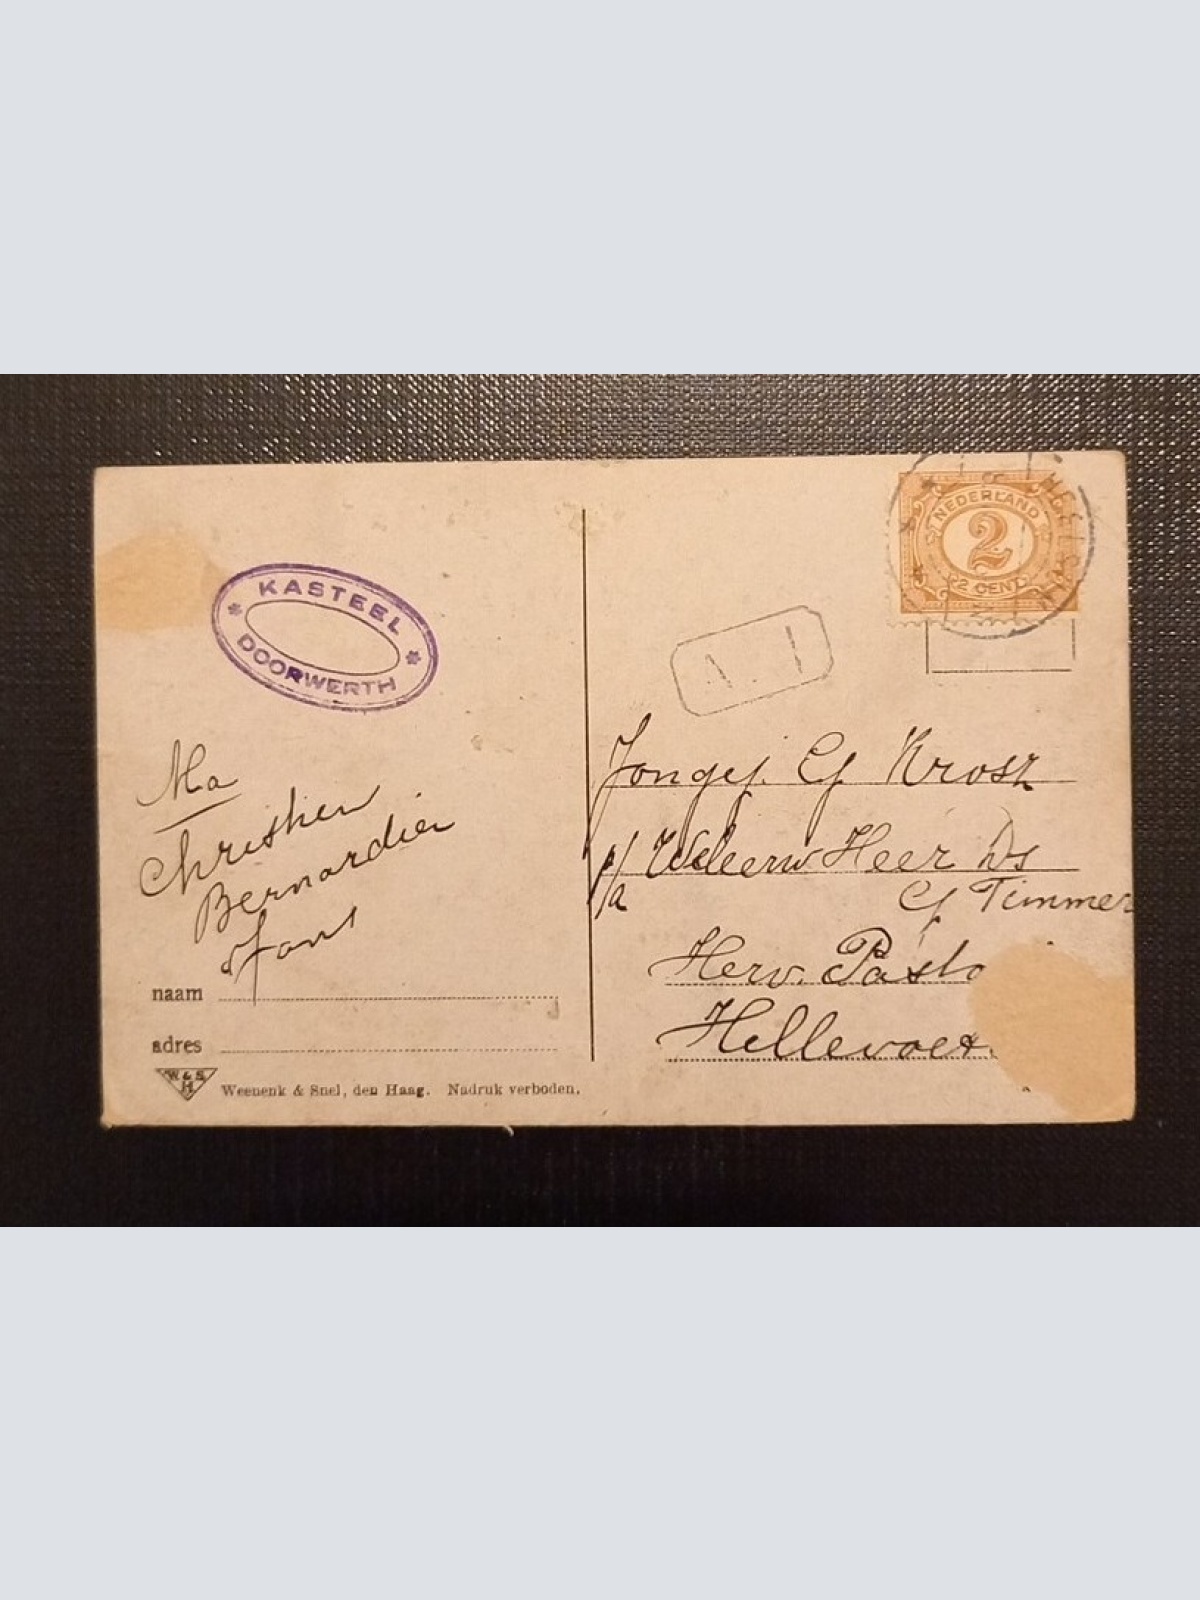 KASTEEL
DOORWERTH
Ma
Christien
Bernardien
naam
adres
W & S
H
Weenenk & Snel, den Haag. Nadruk verboden.
NEDERLAND
2
2 CENT
HEELSUM
A. 1
Jongej. G Krosz
p/a Weleerw Heer Ds
G Timmer
Herv. Pasto
Hellevoet